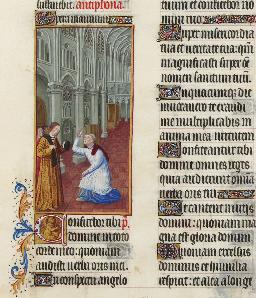 suscitebit. antiphona.
Super matutinum
Confitebor tibi
domine in toto
corde meo: quoniam
audisti verba oris mei.
In conspectu angelo
tuum et confitebor no
mini tuo
Super misericordia
tua et veritate tua: qm̃
magnificasti super oē
nomen sanctum tuum.
In quacumque die
invocavero te exaudi
me multiplicabis in
anima mea virtutem
Confiteantur tibi
domine omnes reges
quia audierunt omnia
verba oris tui
Et cantent in viis
domini: quoniam ma
gna est gloria domini.
Quoniam excelsus
dominus et humilia
respicit: et alta a longe